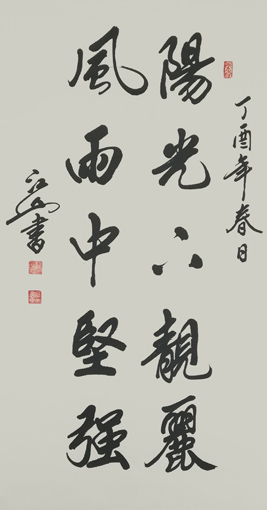 丁酉年春日
陽光下靚麗
風雨中堅强
書